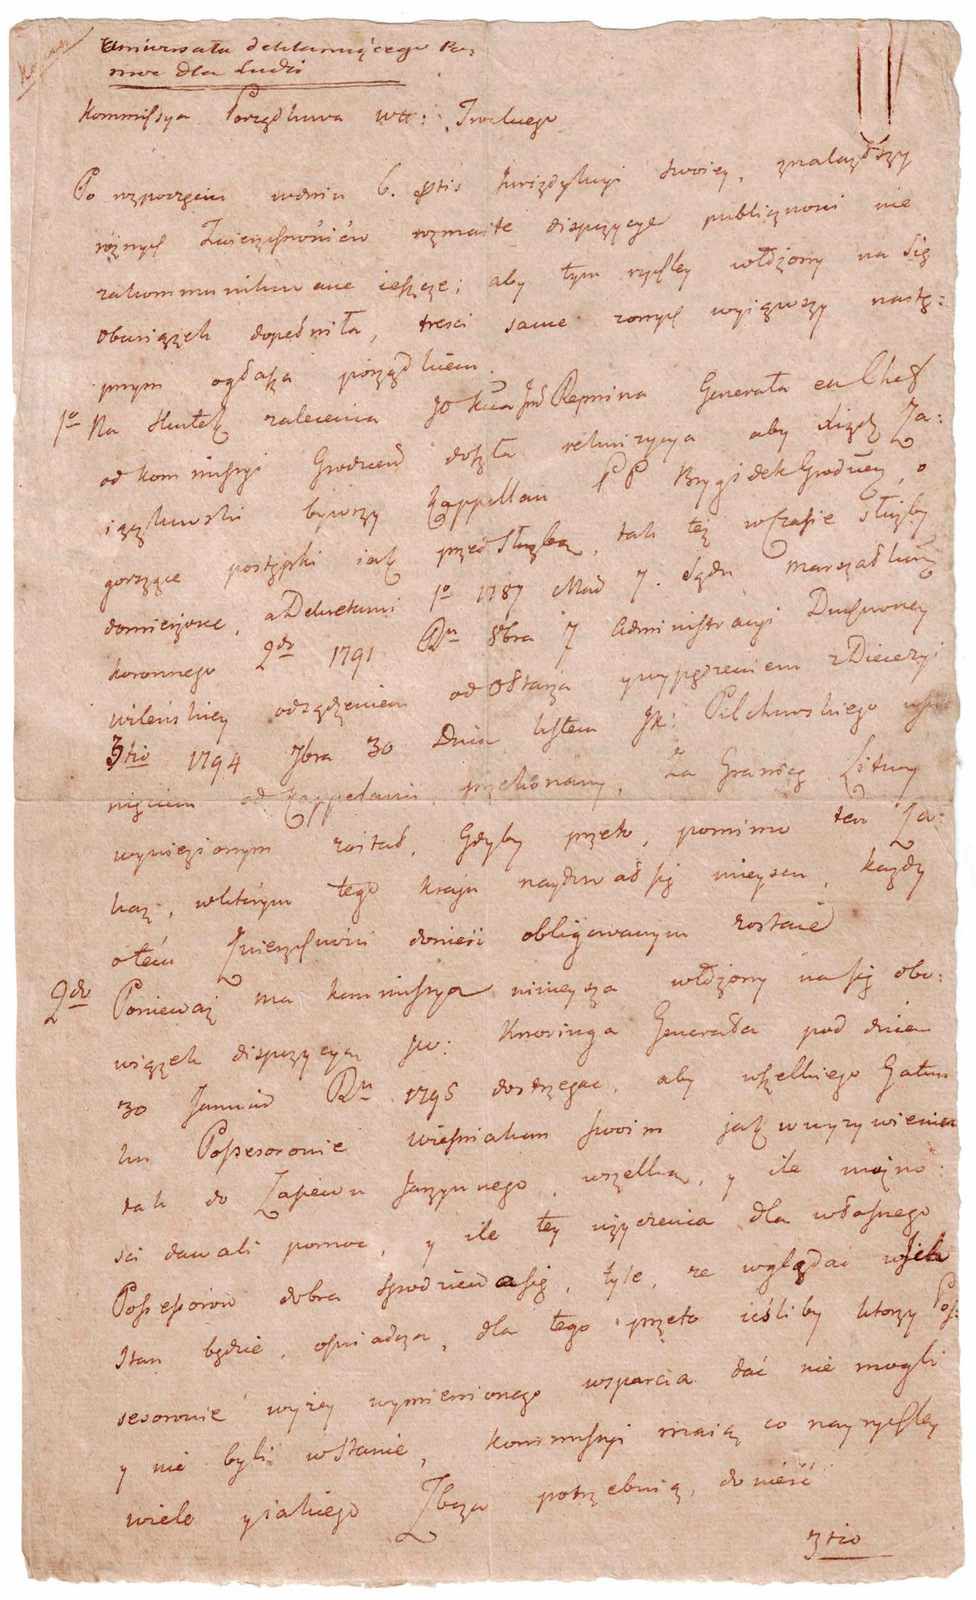 Kopia
Uniwersału deklarującego Po=
moc dla Ludzi
Kommissya Porządkowa Wtt: Trockiego
Po rozpoczęciu w dniu 6. Jurizdykcyi swoiey, znalazłszy
rożnych Zwierzchności rozmaite dispozycye publicznosci nie
zakommunikowane ieszcze; aby tym rychley włożony na się
Obowiązek dopełniła, tresci same z onych wyiąwszy nastę:
pnym ogłasza porządkiem.
1o Na skutek zalecenia JO Kcia Jmć Repnina Generała en Chef
od kommissyi Grodzień doszła rekwizycya aby Xiądz Za:
iączkowski bywszy Kappellan PP Brygidek Grodzień, o
gorszące postępki iak przed Służbą, tak też w czasie służby
domierzone, a Dekretami 1o 1787 Mad 7. Sądu Marszałkow
koronnego 2do 1791 Dn 8bra 7 Administracyi Duchowney
wileńskiey odsądzeniem od Ołtarza y wypędzeniem z Diecezyi
3tio 1794 7bra 30 Dnia listem JX: Pilchowskiego usu
nięciem od kappelanii, przekonany, Za Granicę Litwy
wywiezionym został, Gdyby przeto, pomimo ten Za:
kaz, w którym tego kraju naydował się mieyscu, każdy
o tém Zwierzchności donieść obligowanym zostaie
2do Ponieważ ma kommissya ninieysza włożony na się obo:
wiązek dispozycyą JW: Knoringa Generała pod dniem
30 Januar Rn 1795 dostrzegac, aby wszelkiego Gatun
ku Possesorowie wieśniakom swoim jak w wyzywieniu
tak do Zasiewu Jarzynnego, wszelką, y ile możno:
sci dawali pomoc, y ile tey użyczenia dla własnego
Possessorow dobra spodziewa się, tyle, ze wglądać w ich
Stan będzie, oswiadcza, dla tego przeto ieśliby ktorzy Pos:
sesorowie wyżey wymienionego wsparcia dać nie mogli
y nie byli w Stanie, kommissyi maią co nayrychley
wiele y iakiego Zboza potrzebuią, donieść
3tio